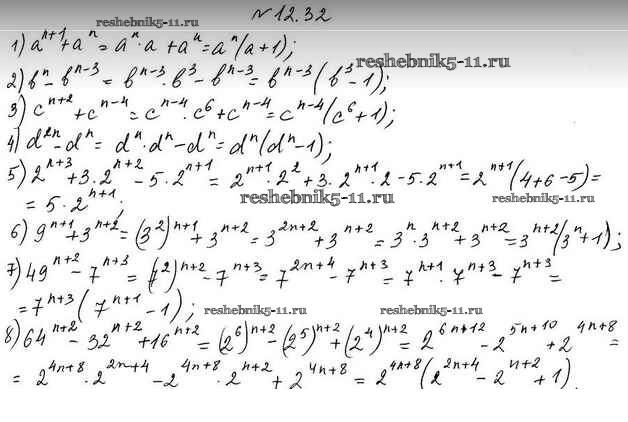 №12.32
reshebnik5-11.ru
1) aⁿ⁺¹+aⁿ = aⁿ·a + aⁿ = aⁿ(a+1);
reshebnik5-11.ru
2) bⁿ - bⁿ⁻³ = bⁿ⁻³·b³ - bⁿ⁻³ = bⁿ⁻³(b³-1);
3) cⁿ⁺² + cⁿ⁻⁴ = cⁿ⁻⁴·c⁶ + cⁿ⁻⁴ = cⁿ⁻⁴(c⁶+1);
4) d²ⁿ - dⁿ = dⁿ·dⁿ - dⁿ = dⁿ(dⁿ-1);
5) 2ⁿ⁺³ + 3·2ⁿ⁺² - 5·2ⁿ⁺¹ = 2ⁿ⁺¹·2² + 3·2ⁿ⁺¹·2 - 5·2ⁿ⁺¹ = 2ⁿ⁺¹(4+6-5) =
= 5·2ⁿ⁺¹;
reshebnik5-11.ru
reshebnik5-11.ru
6) 9ⁿ⁺¹ + 3ⁿ⁺² = (3²)ⁿ⁺¹ + 3ⁿ⁺² = 3²ⁿ⁺² + 3ⁿ⁺² = 3ⁿ·3ⁿ⁺² + 3ⁿ⁺² = 3ⁿ⁺²(3ⁿ+1);
7) 49ⁿ⁺² - 7ⁿ⁺³ = (7²)ⁿ⁺² - 7ⁿ⁺³ = 7²ⁿ⁺⁴ - 7ⁿ⁺³ = 7ⁿ⁺¹·7ⁿ⁺³ - 7ⁿ⁺³ =
= 7ⁿ⁺³(7ⁿ⁺¹ - 1);
reshebnik5-11.ru
reshebnik5-11.ru
8) 64ⁿ⁺² - 32ⁿ⁺² + 16ⁿ⁺² = (2⁶)ⁿ⁺² - (2⁵)ⁿ⁺² + (2⁴)ⁿ⁺² = 2⁶ⁿ⁺¹² - 2⁵ⁿ⁺¹⁰ + 2⁴ⁿ⁺⁸ =
= 2⁴ⁿ⁺⁸·2²ⁿ⁺⁴ - 2⁴ⁿ⁺⁸·2ⁿ⁺² + 2⁴ⁿ⁺⁸ = 2⁴ⁿ⁺⁸(2²ⁿ⁺⁴ - 2ⁿ⁺² + 1).